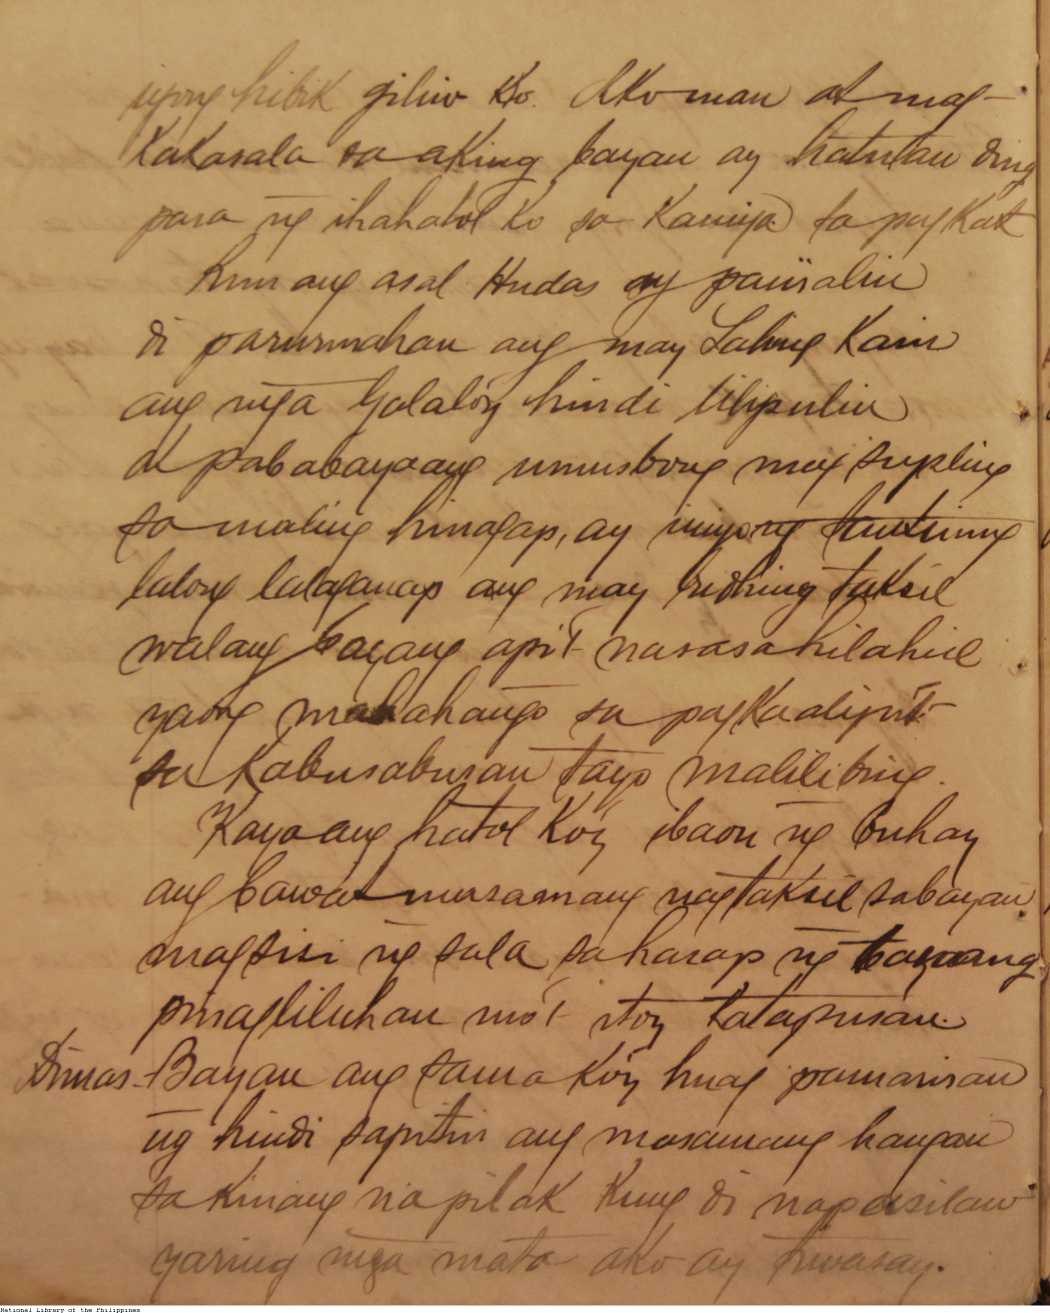 iyong hibik giliw ko. Ako man at mag-
kakasala sa aking bayan ay hatulan ding
para ng ihahatol ko sa kaniya sa pagkat
kun ang asal Hudas ay paiiralin
di parurusahan ang may Lahing Kain
ang mga Galalóng hindi lilipulin
at pababayaang umusbong may supling
sa maling hinagap, ay iniyong
lalong lalaganap ang may budhing taksil
walang bayang api't nasasahilahil
yaong mahahango sa pagkaalipin't
sa kabusabusan tayo malilibing.
Kaya ang hatol ko'y ibaon ng buhay
ang bawat masamang nagtaksil sa bayan
magsisi ng sala sa harap ng bayang
pinagliluhan mo't ito'y katapusan.
Dimas-Bayan ang sama ko'y huag pamarisan
ng hindi sapitin ang masamang hangan
sa kinang na pilak kung di napasilaw
yaring mga mata ako ay tiwasay.
National Library of the Philippines